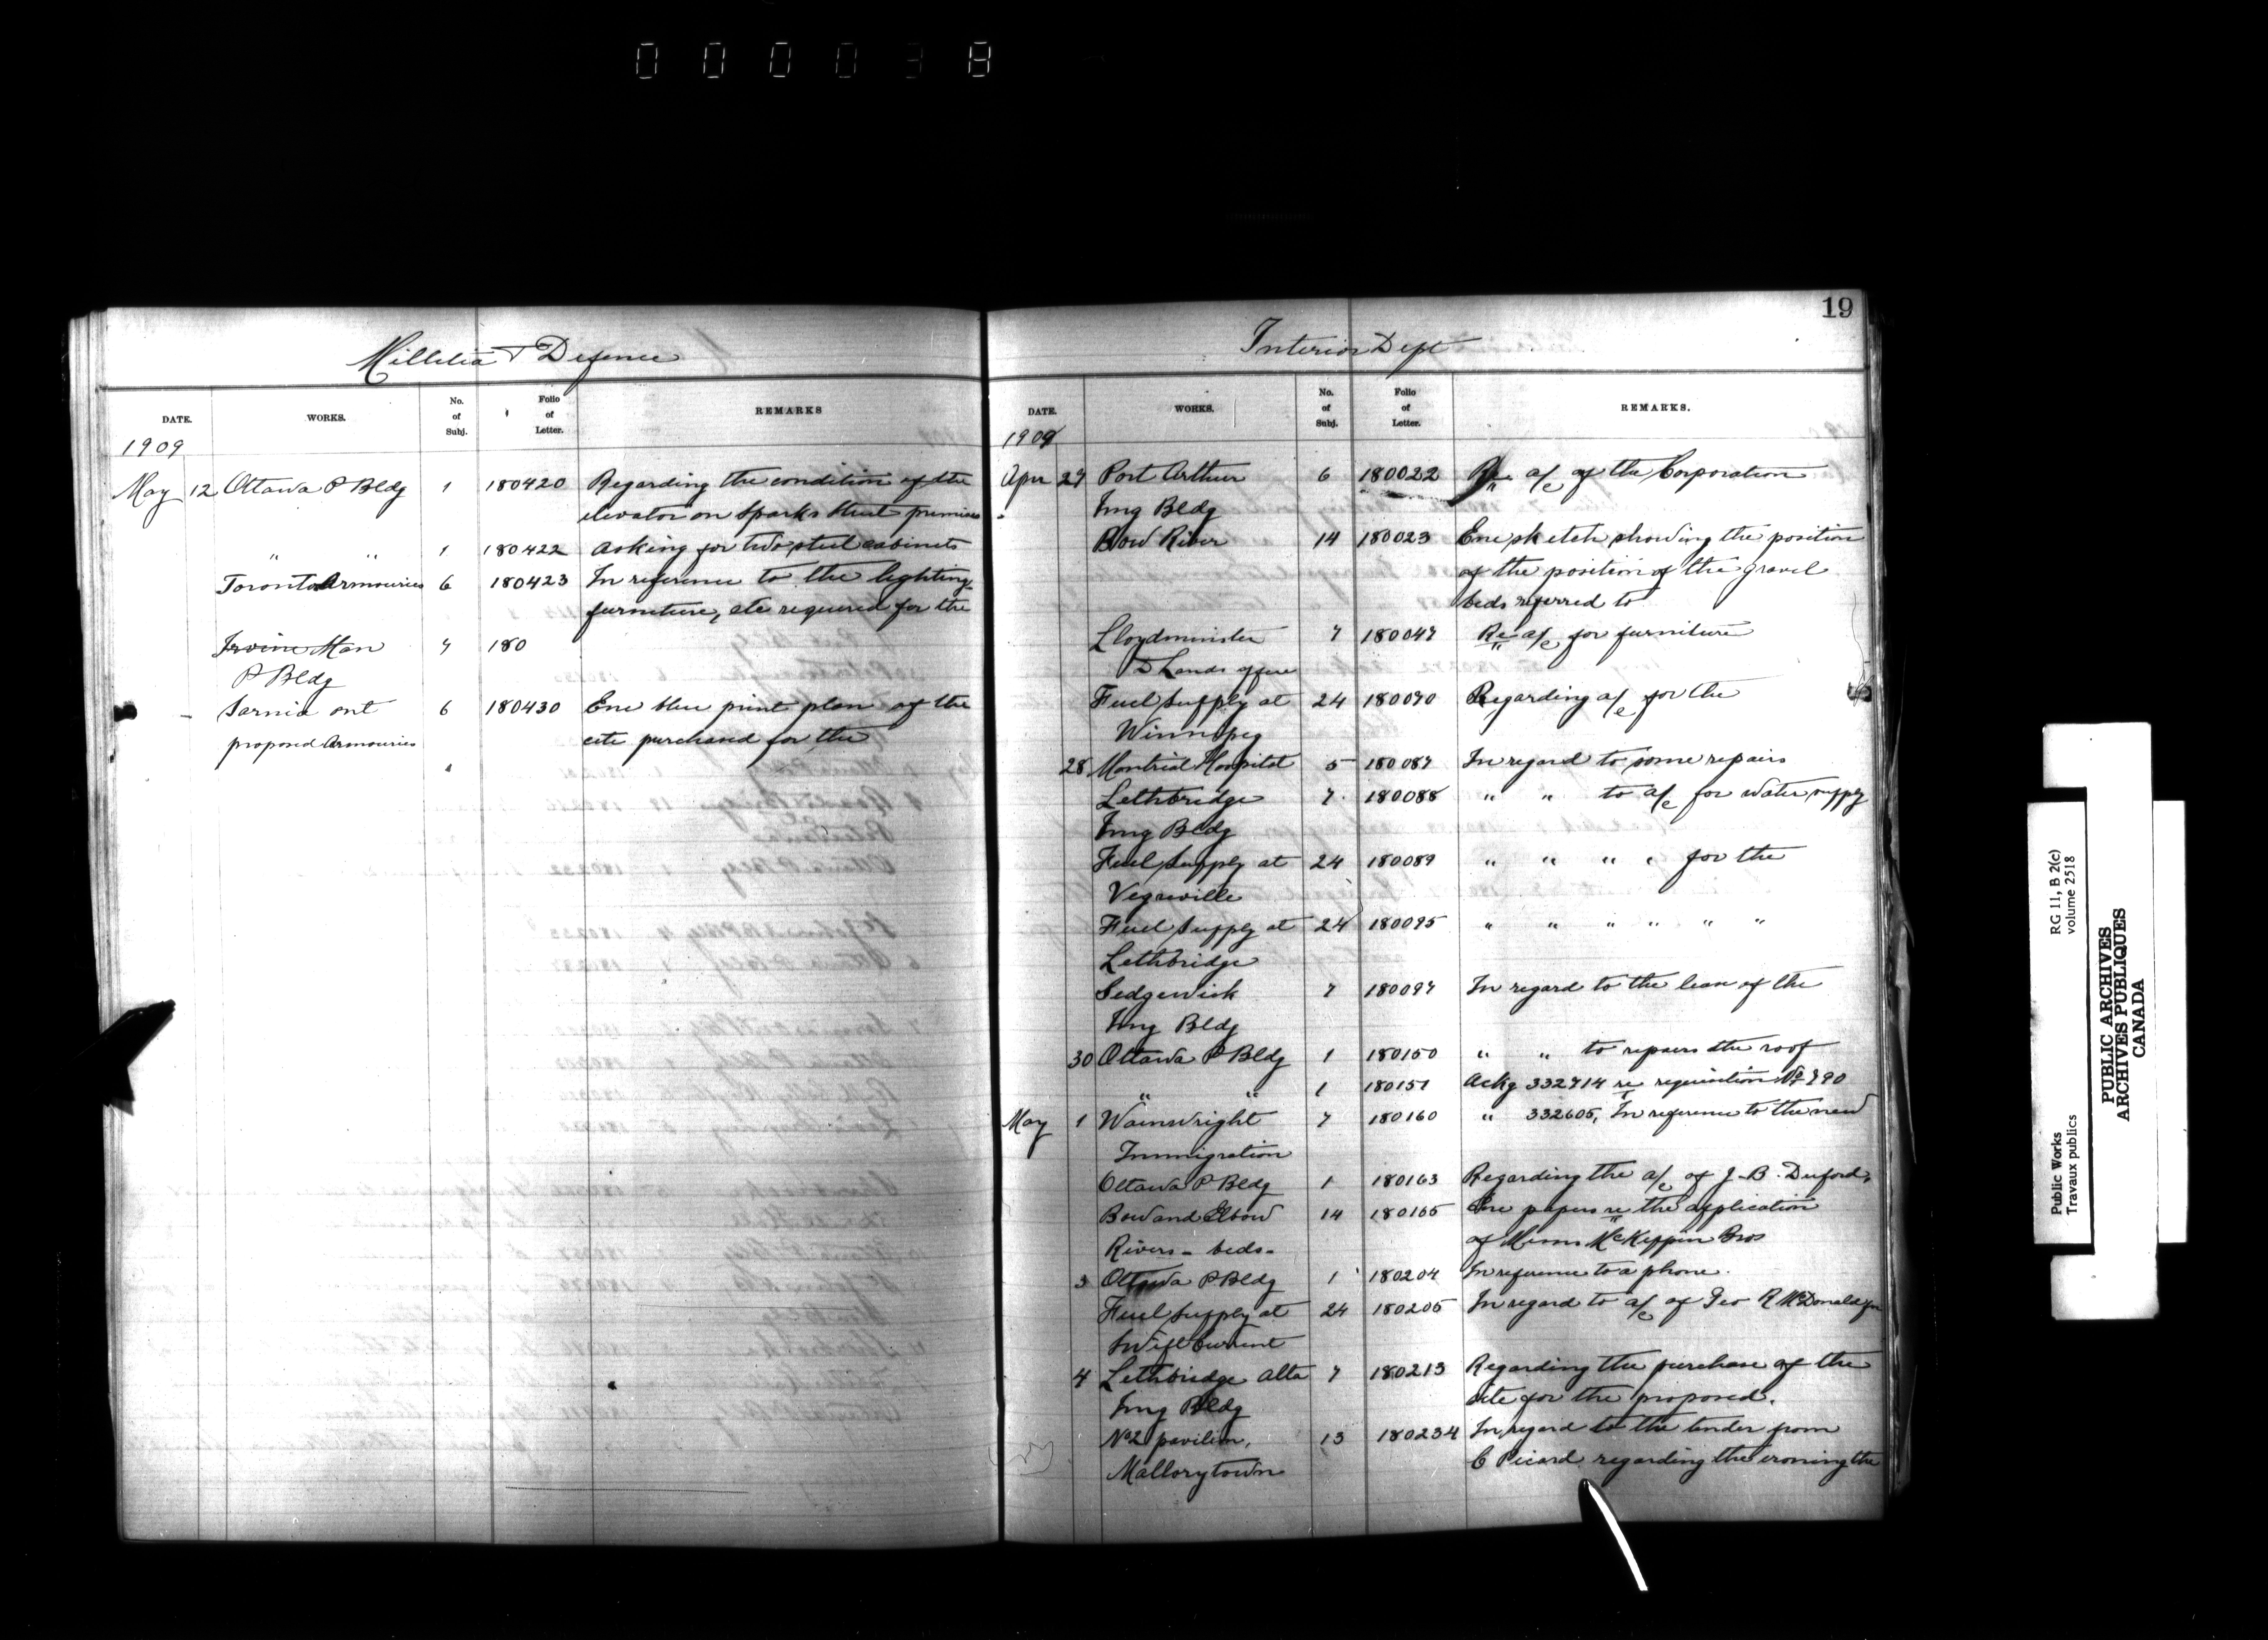 000038
19
Millitia & Defence
DATE. WORKS. No. of Subj. Folio of Letter. REMARKS
1909
May 12 Ottawa P Bldg 1 180420 Regarding the condition of the
elevator on Sparks Street premises
" " 1 180422 Asking for two steel cabinets
Toronto Armouries 6 180423 In reference to the lighting
furniture, etc required for the
Irvine Man 7 180
P Bldg
Sarnia Ont 6 180430 Enc blue print plan of the
proposed Armouries cite purchased for the
Interior Dept
DATE. WORKS. No. of Subj. Folio of Letter. REMARKS.
1909
Apr 27 Port Arthur 6 180022 Re a/c of the Corporation
Img Bldg
Bow River 14 180023 Enc sketch showing the position
of the position of the gravel
beds referred to
Lloydminster 7 180047 Re a/c for furniture
D Lands office
Fuel Supply at 24 180070 Regarding a/c for the
Winnipeg
28 Montreal Hospital 5 180087 In regard to some repairs
Lethbridge 7 180088 " " to a/c for water supply
Img Bldg
Fuel Supply at 24 180089 " " " " for the
Vegreville
Fuel Supply at 24 180095 " " " " " "
Lethbridge
Sedgewick 7 180097 In regard to the lease of the
Img Bldg
30 Ottawa P Bldg 1 180150 " " to repairs the roof
" " 1 180151 Ackg 332714 re requisition No 790
May 1 Wainwright 7 180160 " 332605, In reference to the new
Immigration
Ottawa P Bldg 1 180163 Regarding the a/c of J. B. Duford,
Bow and Elbow 14 180165 Enc papers re the application
Rivers - beds - of Messrs McKippin Bros
3 Ottawa P Bldg 1 180204 In reference to a phone.
Fuel Supply at 24 180205 In regard to a/c of Geo R McDonald for
Swift Current
4 Lethbridge Alta 7 180213 Regarding the purchase of the
Img Bldg site for the proposed.
No 2 pavilion, 13 180234 In regard to the tender from
Mallorytown C Picard regarding the ironing the
Public Works RG 11, B 2(c)
Travaux publics volume 2518
PUBLIC ARCHIVES
ARCHIVES PUBLIQUES
CANADA